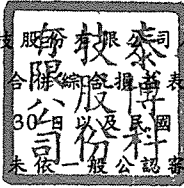 技股份有限公司
合併綜合損益表
30日以及民國
未依一般公認審
泰博科
技股份
有限公司